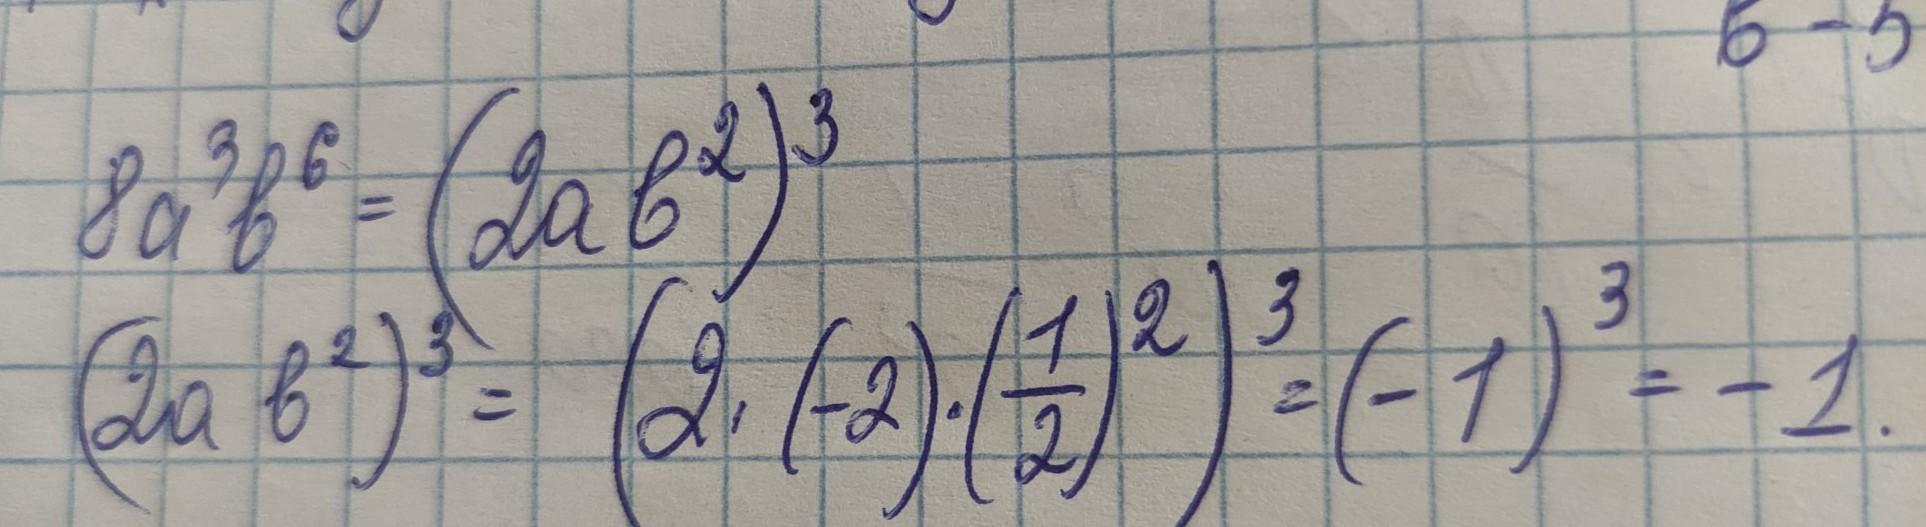 б - 5
8a³b⁶ = (2ab²)³
(2ab²)³ = (2·(-2)·(1/2)²)³ = (-1)³ = -1.